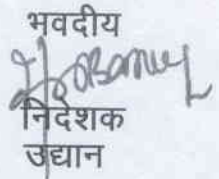 भवदीय
निदेशक
उद्यान